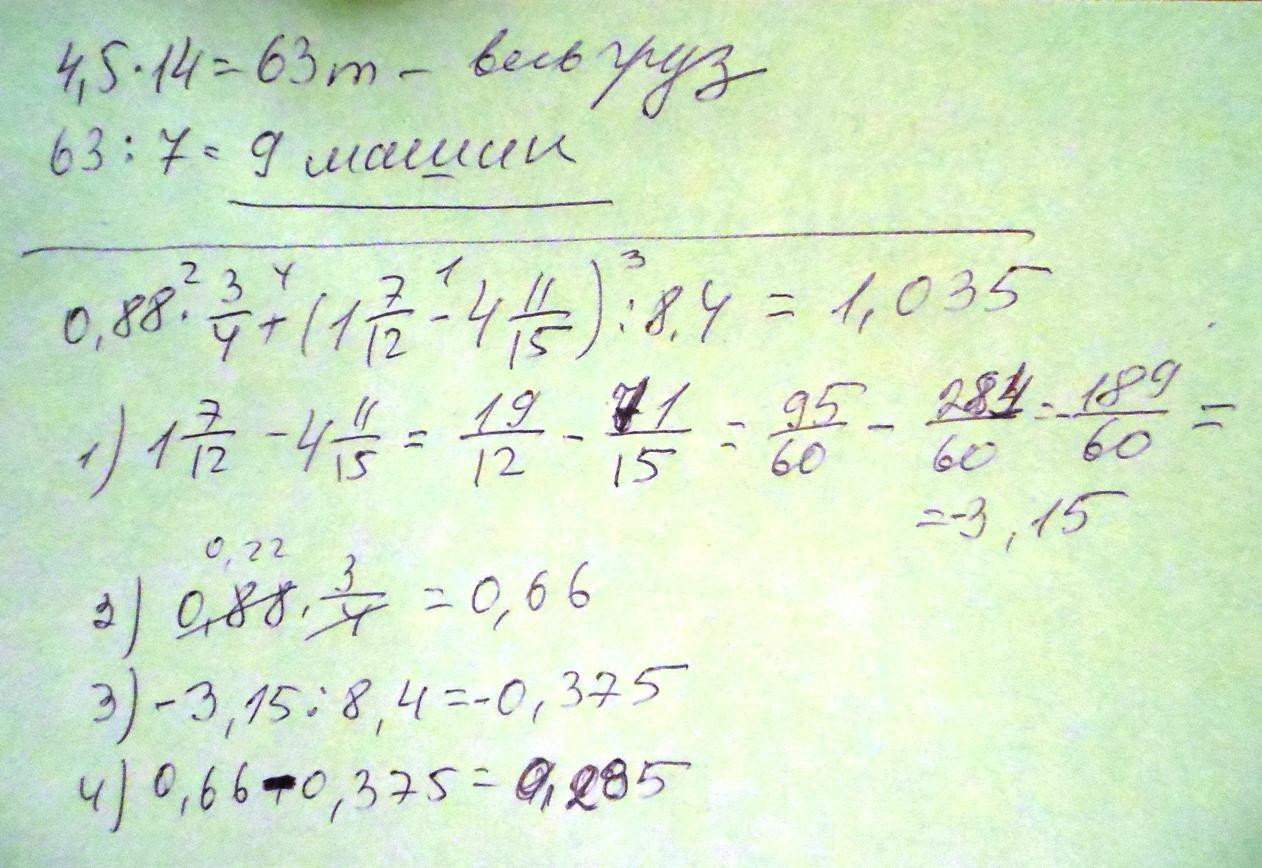 4,5·14=63т – весь груз
63:7= 9 машин
0,88·² 3/4 +⁴ (1 7/12 -¹ 4 11/15) :³ 8,4 = 1,035
1) 1 7/12 - 4 11/15 = 19/12 - 71/15 = 95/60 - 284/60 = -189/60 =
=-3,15
0,22
2) 0,88·3/4 = 0,66
3) -3,15:8,4=-0,375
4) 0,66-0,375=0,285